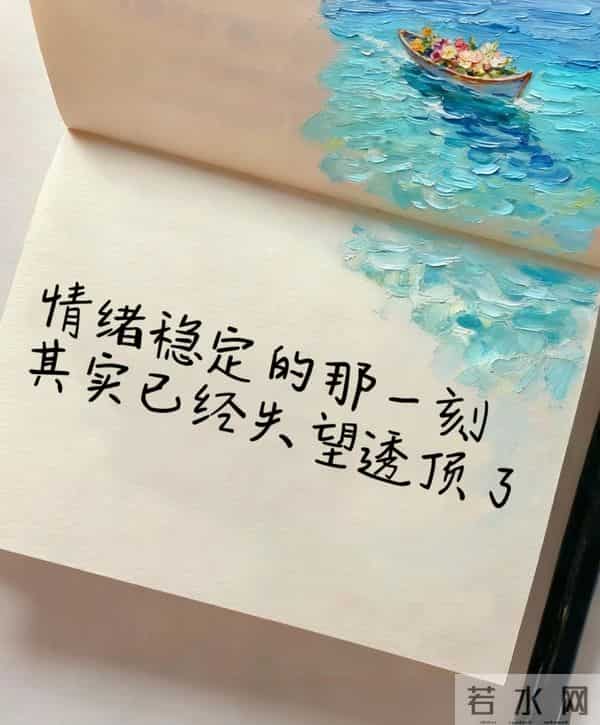 情绪稳定的那一刻
其实已经失望透顶了
若水网